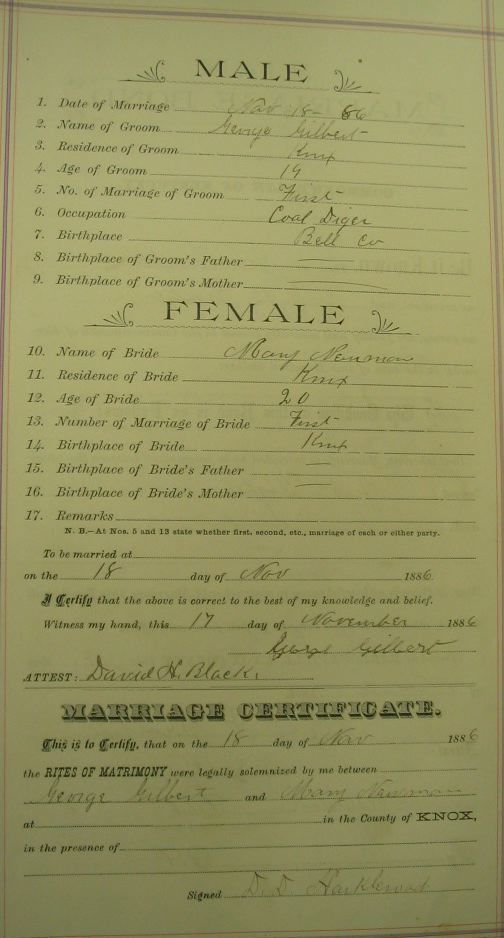 MALE
1. Date of Marriage Nov 18 - 86
2. Name of Groom George Gilbert
3. Residence of Groom Knx
4. Age of Groom 19
5. No. of Marriage of Groom First
6. Occupation Coal Diger
7. Birthplace Bell Co
8. Birthplace of Groom's Father
9. Birthplace of Groom's Mother
FEMALE
10. Name of Bride Mary Newman
11. Residence of Bride Knx
12. Age of Bride 20
13. Number of Marriage of Bride First
14. Birthplace of Bride Knx
15. Birthplace of Bride's Father
16. Birthplace of Bride's Mother
17. Remarks
N. B.—At Nos. 5 and 13 state whether first, second, etc., marriage of each or either party.
To be married at
on the 18 day of Nov 1886
I Certify that the above is correct to the best of my knowledge and belief.
Witness my hand, this 17 day of November 1886
George Gilbert
ATTEST: David H. Black.
MARRIAGE CERTIFICATE.
This is to Certify, that on the 18 day of Nov 1886
the RITES OF MATRIMONY were legally solemnized by me between
George Gilbert and Mary Newman
at in the County of KNOX,
in the presence of
Signed D. D.